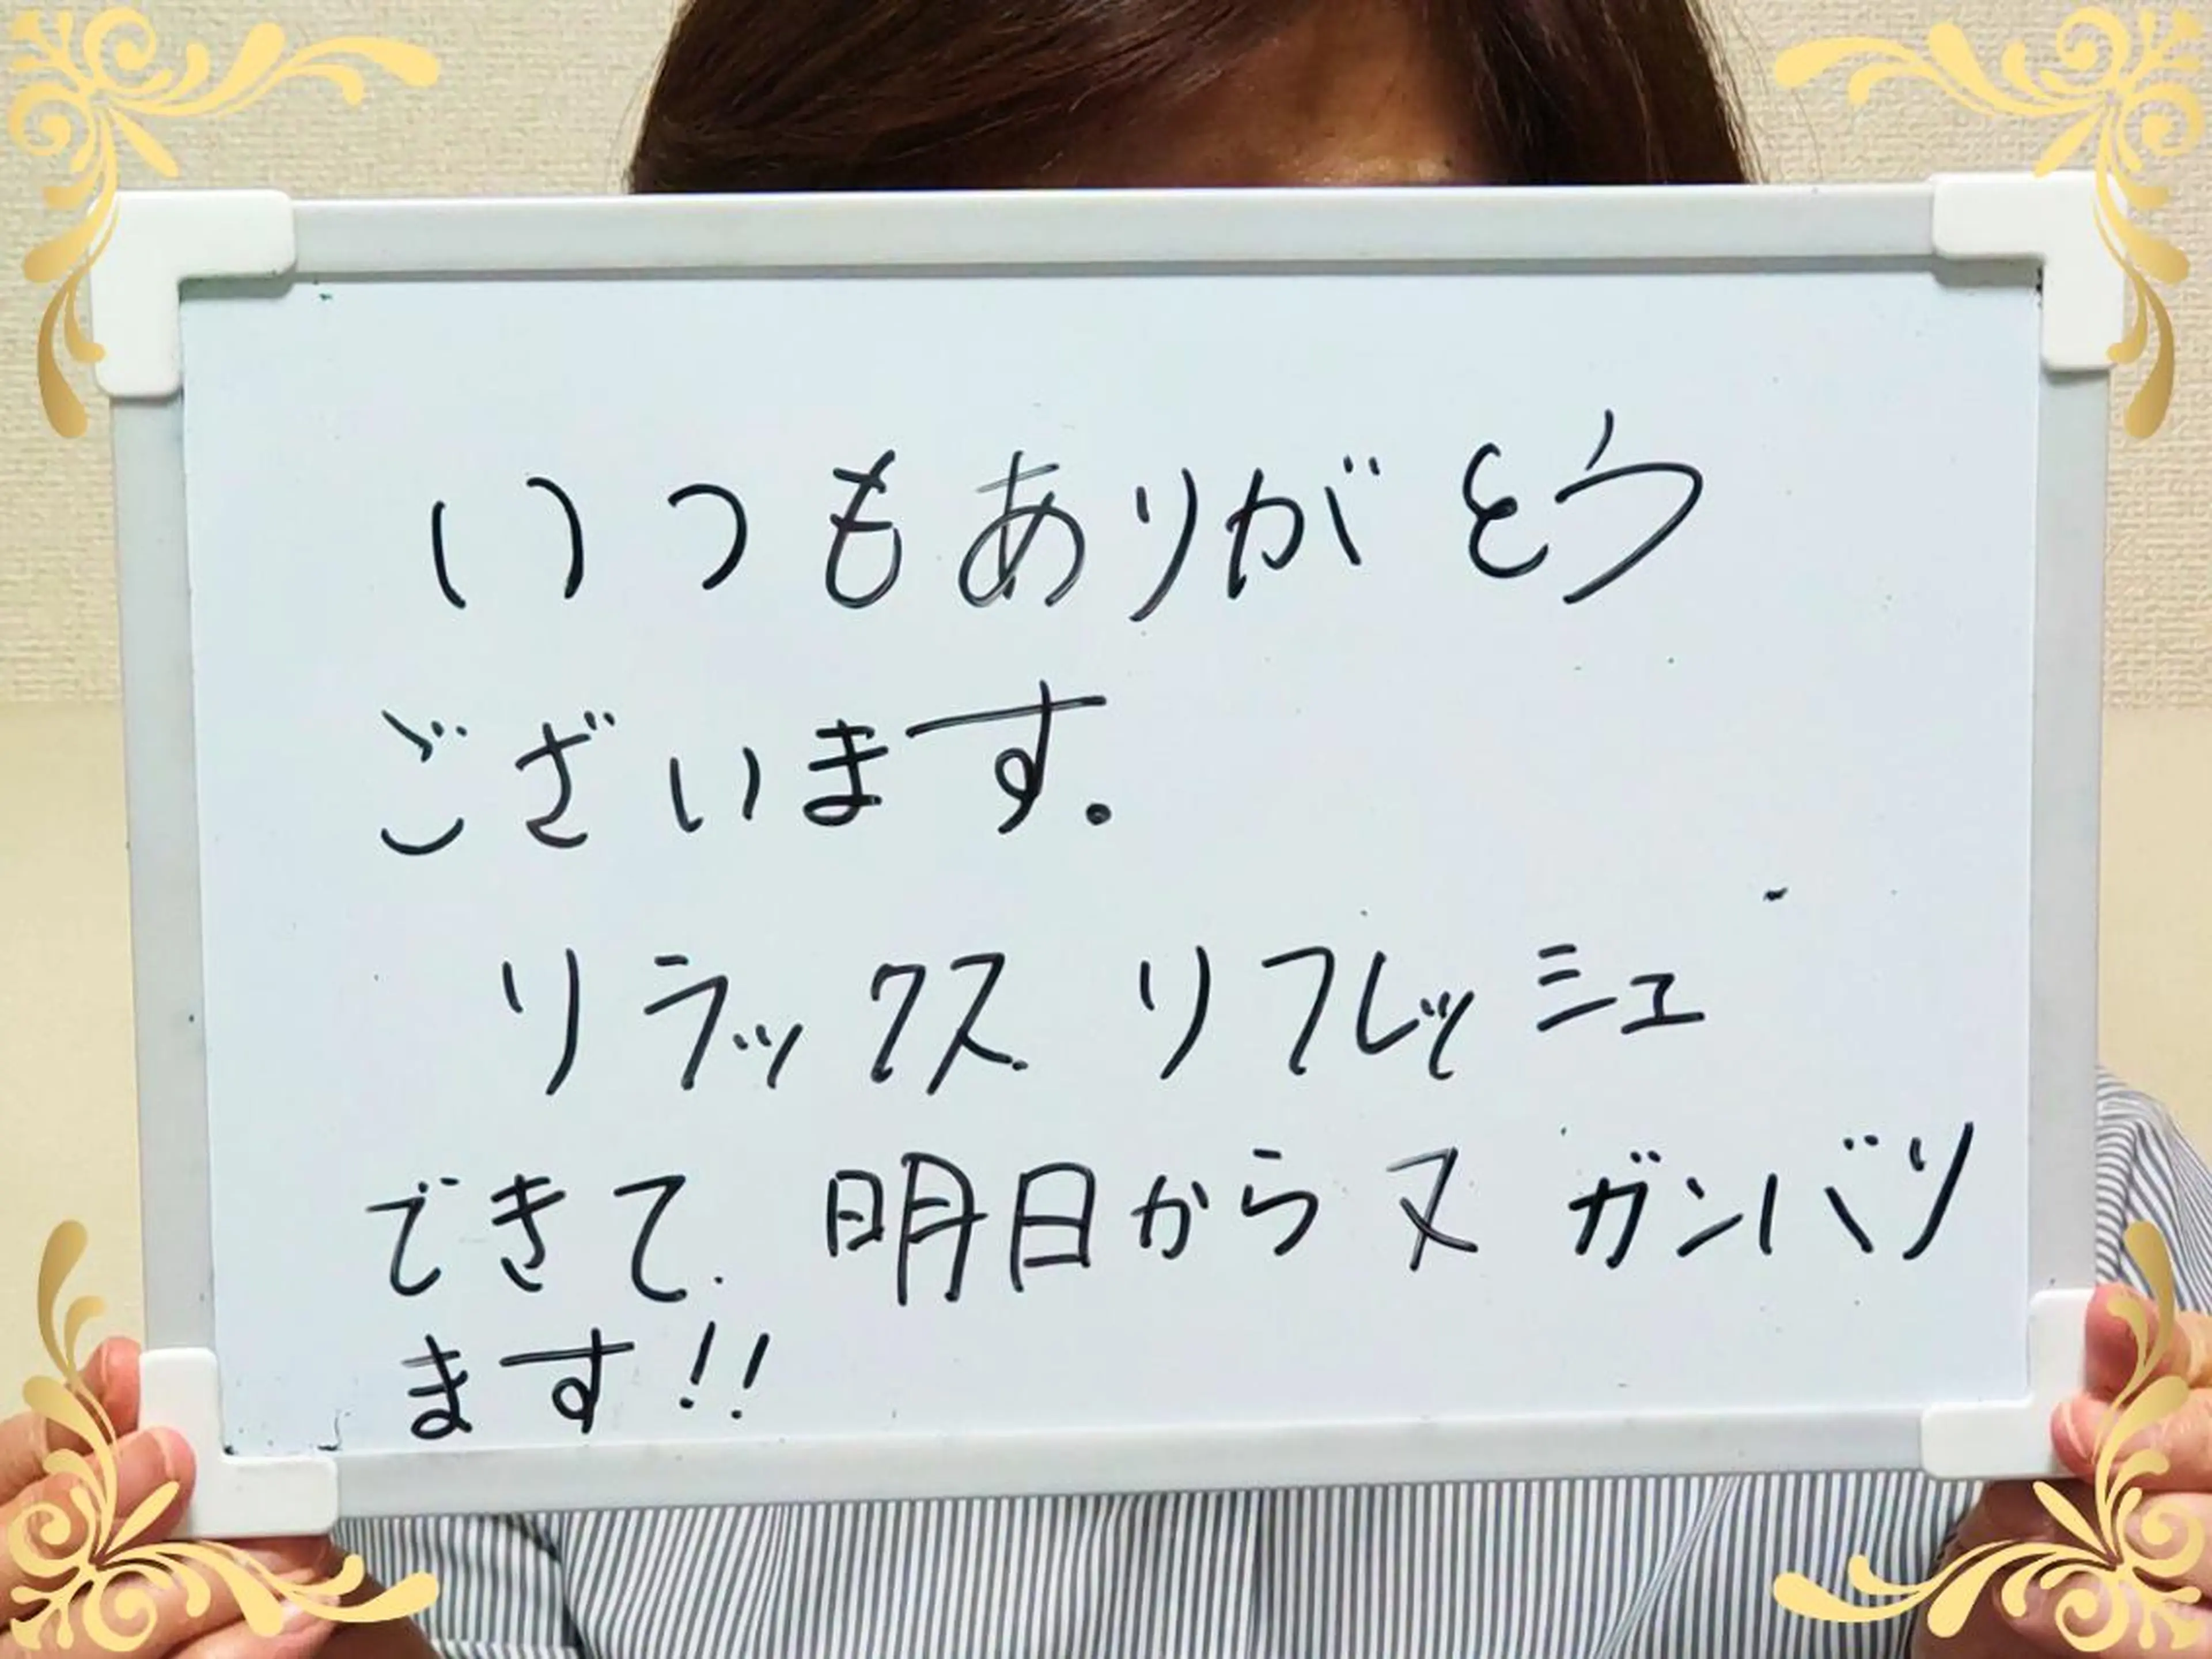 いつもありがとう
ございます.
リラックス リフレッシュ
できて. 明日から又 ガンバリ
ます!!